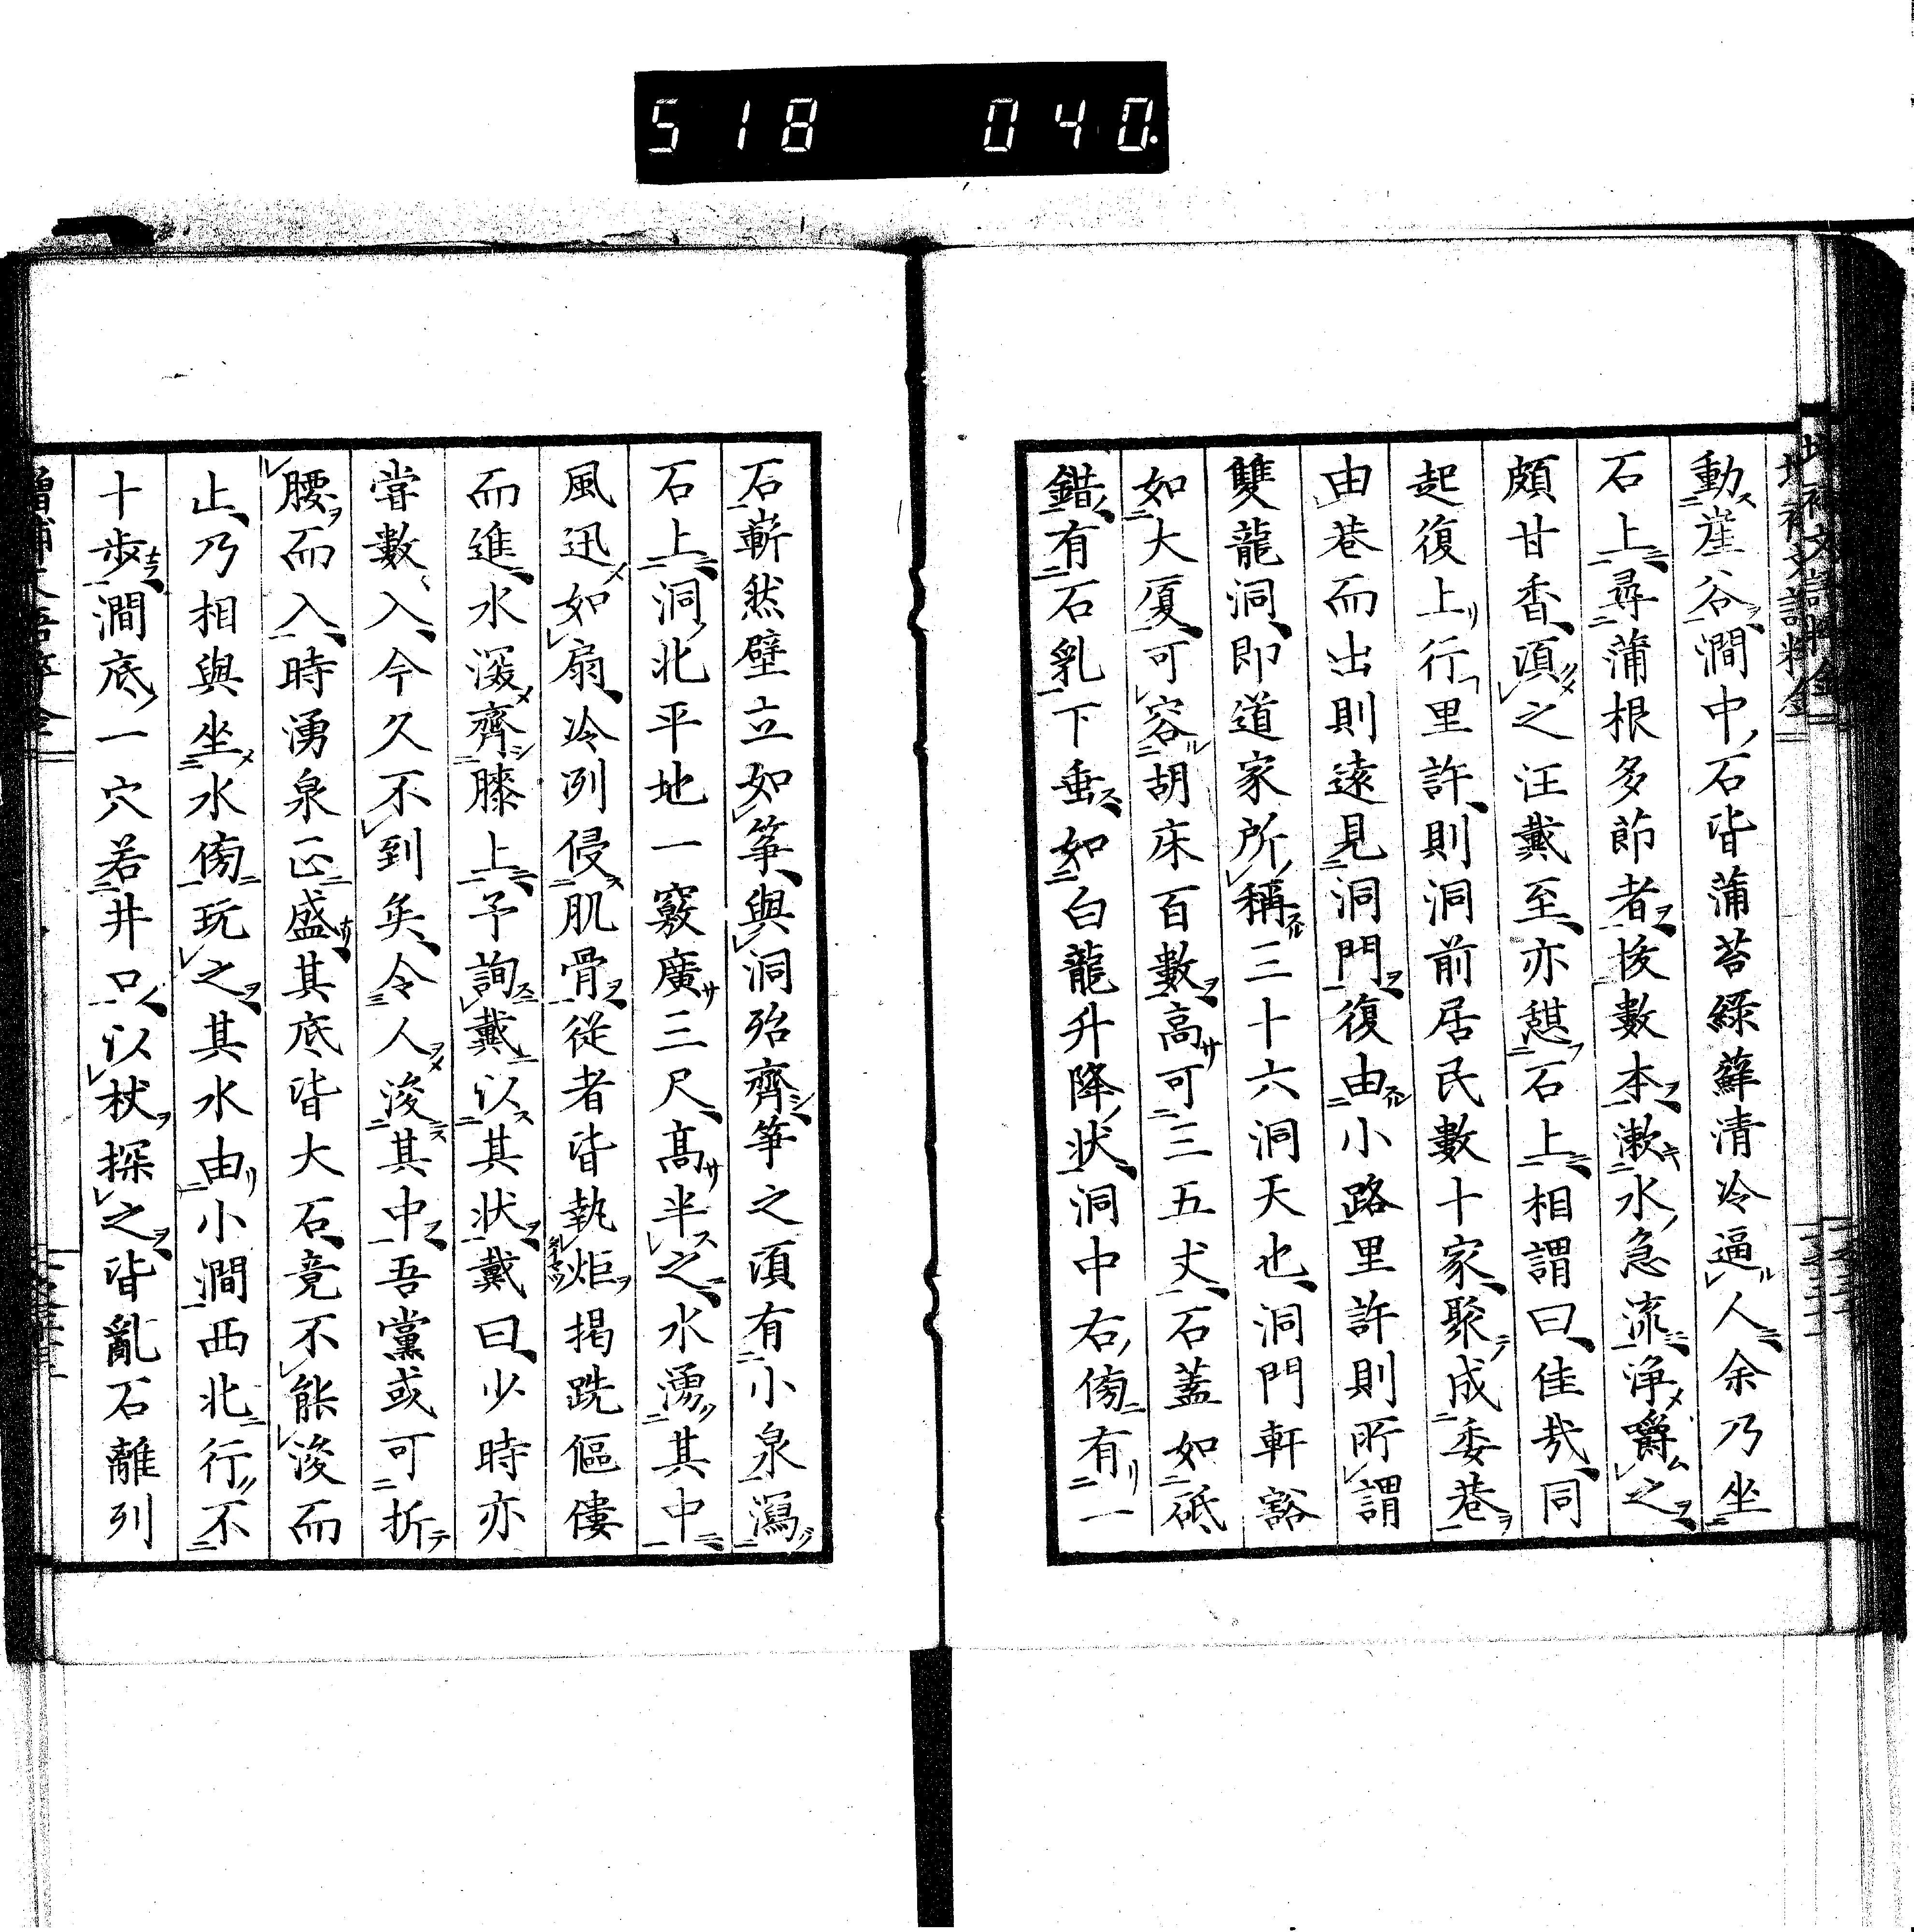 518 040.
動崖谷澗中石皆蒲苔緑蘚清冷逼人余乃坐
石上尋蒲根多節者梭數本漱水急流浄嚼之
頗甘香湏之汪戴至亦憇石上相謂曰佳哉同
起復上行里許則洞前居民數十家聚成委巷
由巷而出則遠見洞門復由小路里許則所謂
雙龍洞即道家所稱三十六洞天也洞門軒豁
如大厦可容胡床百數高可三五丈石蓋如砥
錯有石乳下垂如白龍升降状洞中右傍有一
石嶄然壁立如筝與洞殆齊筝之湏有小泉瀉
石上洞北平地一竅廣三尺髙半之水湧其中
風迅如扇冷列侵肌骨從者皆執炬掲跣傴僂
而進水深齊膝上予詢戴以其状戴曰少時亦
嘗數入今久不到矣令人浚其中吾黨或可折
腰而入時湧泉正盛其底皆大石竟不能浚而
止乃相與坐水傍玩之其水由小澗西北行不
十歩澗底一穴若井口以杖探之皆亂石離列